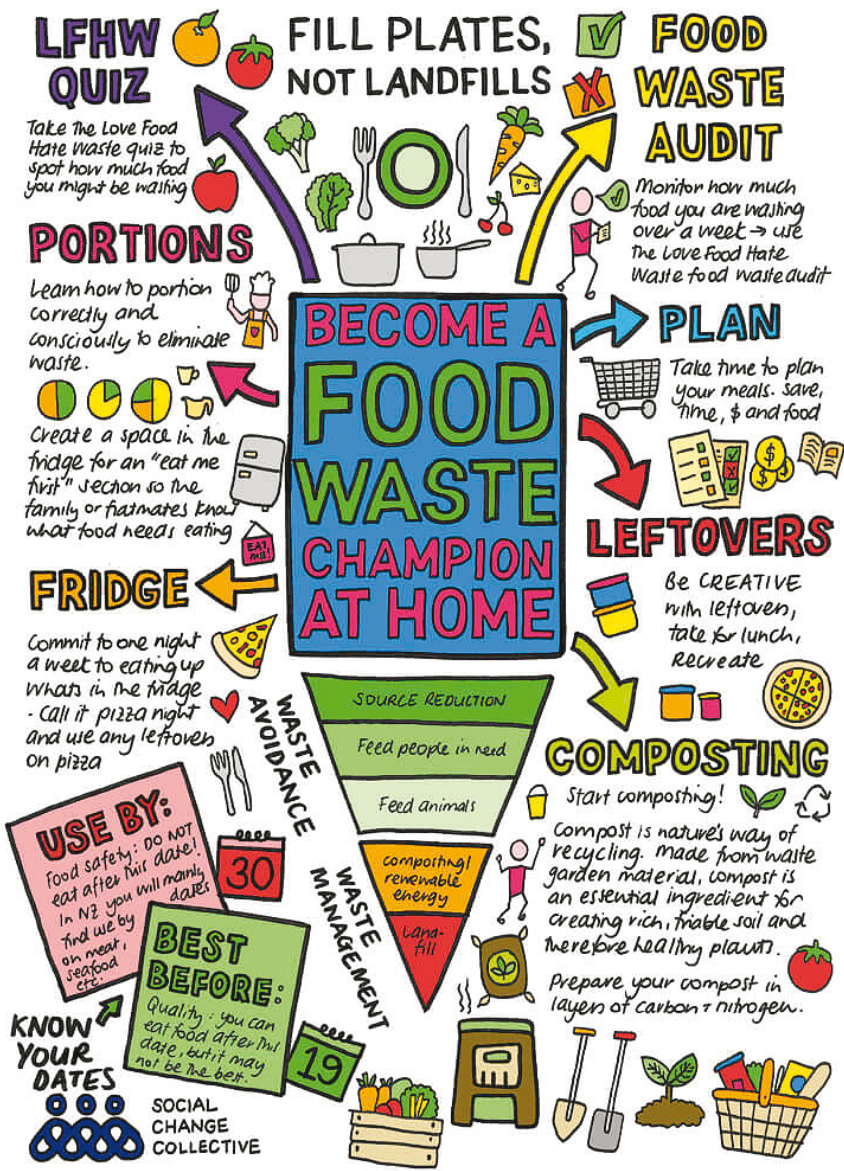 FILL PLATES,
NOT LANDFILLS
LFHW
QUIZ
Take the Love Food
Hate Waste quiz to
spot how much food
you might be wasting
FOOD
WASTE
AUDIT
Monitor how much
food you are wasting
over a week → use
the Love Food Hate
Waste food waste audit
PORTIONS
Learn how to portion
correctly and
consciously to eliminate
waste.
BECOME A
FOOD
WASTE
CHAMPION
AT HOME
PLAN
Take time to plan
your meals. save,
time, $ and food
Create a space in the
fridge for an "eat me
first" section so the
family or flatmates know
what food needs eating
EAT
me!
LEFTOVERS
Be CREATIVE
with leftovers,
take for lunch,
Recreate
FRIDGE
Commit to one night
a week to eating up
whats in the fridge
- Call it pizza night
and use any leftovers
on pizza
WASTE
AVOIDANCE
SOURCE REDUCTION
Feed people in need
Feed animals
WASTE
MANAGEMENT
composting/
renewable
energy
Land-
fill
COMPOSTING
Start composting!
Compost is nature's way of
recycling. Made from waste
garden material, compost is
an essential ingredient for
creating rich, friable soil and
therefore healthy plants.
Prepare your compost in
layers of carbon + nitrogen.
USE BY:
Food safety: DO NOT
eat after this date!
In NZ you will mainly
find use by dates
on meat,
seafood
etc.
30
BEST
BEFORE:
Quality: you can
eat food after this
date, but it may
not be the best.
19
KNOW
YOUR
DATES
SOCIAL
CHANGE
COLLECTIVE